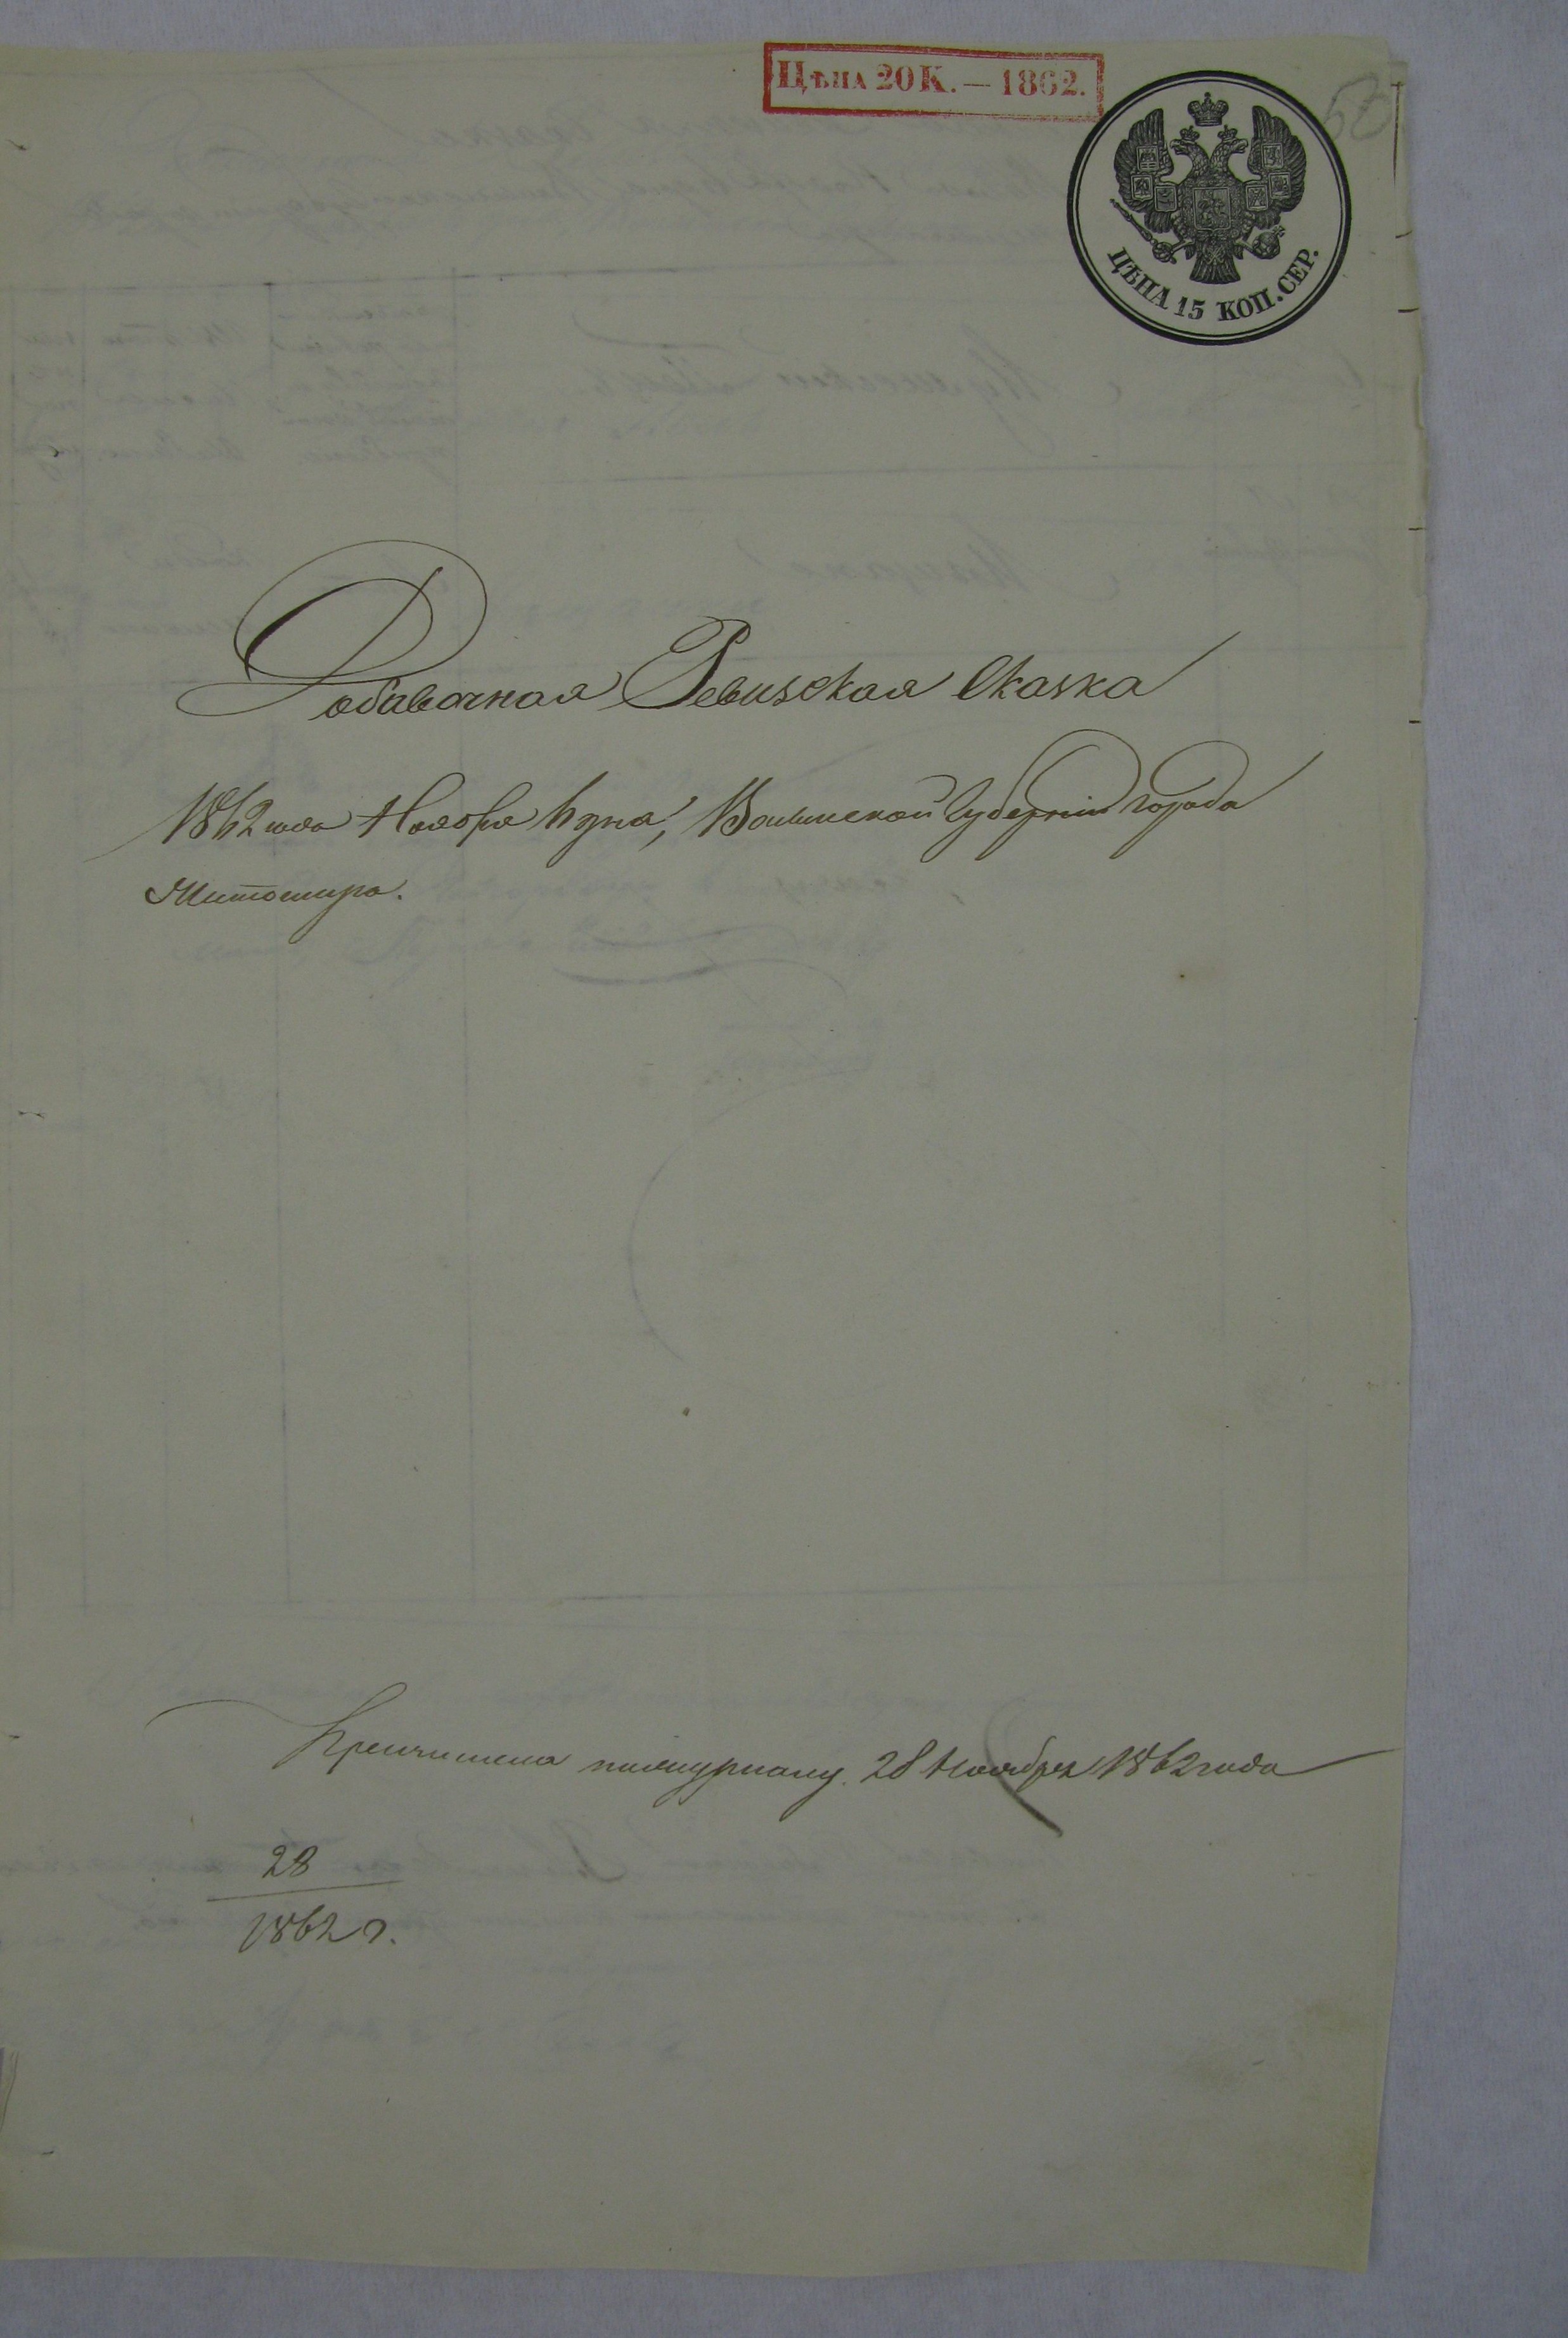 Цѣна 20 К. — 1862.
ЦѢНА 15 КОП. СЕР.
Добавочная Ревизская Сказка
1862 года Ноября 6 дня, Волынской Губерніи города
Житомира.
28 Ноября 1862 года
28
1862 г.